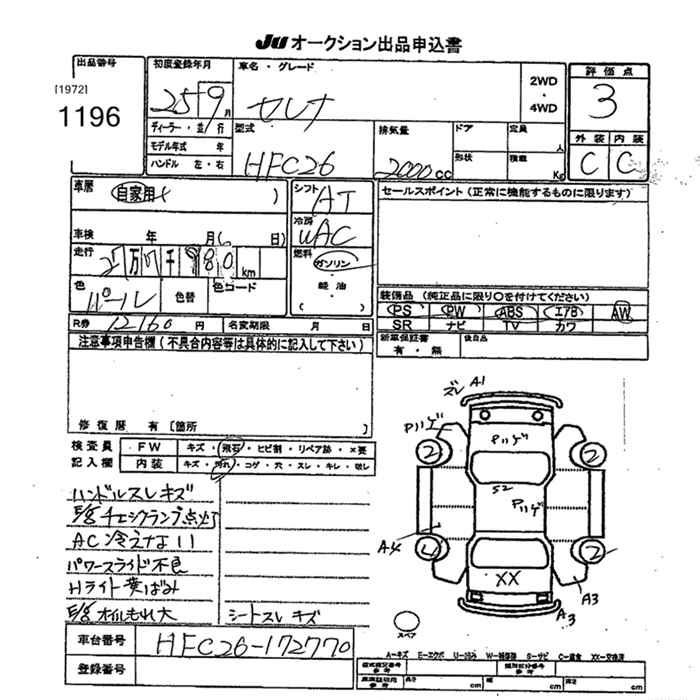 JU オークション出品申込書
出品番号
[1972]
1196
初度登録年月
25 9 月
車名・グレード
セレナ
2WD
・
4WD
評価点
3
外装 内装
C C
ディーラー・並行
モデル年式 年
ハンドル 左・右
型式
HFC26
排気量
2000 CC
ドア
形状
定員
人
積載
Kg
車歴
自家用
シフト
AT
車検 年 月 日
冷房
WAC
走行
km
燃料
ガソリン
・
軽油
色
パール
色替
色コード
R券 12160 円 名変期限 月 日
セールスポイント (正常に機能するものに限ります)
装備品 (純正品に限り○を付けてください)
PS PW ABS エアB AW
SR ナビ TV カワ
新車保証書
有・無
後日品
注意事項申告欄 (不具合内容等は具体的に記入して下さい)
修復歴 有 [箇所 ]
検査員
記入欄
FW キズ・飛石・ヒビ割・リペア跡・×要
内装 キズ・汚れ・コゲ・穴・スレ・キレ・
ハンドルスレキズ
E/g チェックランプ点灯
AC冷えない
パワースライド不良
Hライト黄ばみ
E/g オイルもれ大
シートスレキズ
ズレ A1
Pハゲ
Pハゲ
2 2
S2
Pハゲ
A4
2
XX
A3
A3
スペア
車台番号 HFC26-172770
登録番号
A=キズ E=エクボ W=補修跡 S=サビ C=腐食 XX=交換済
cm cm cm